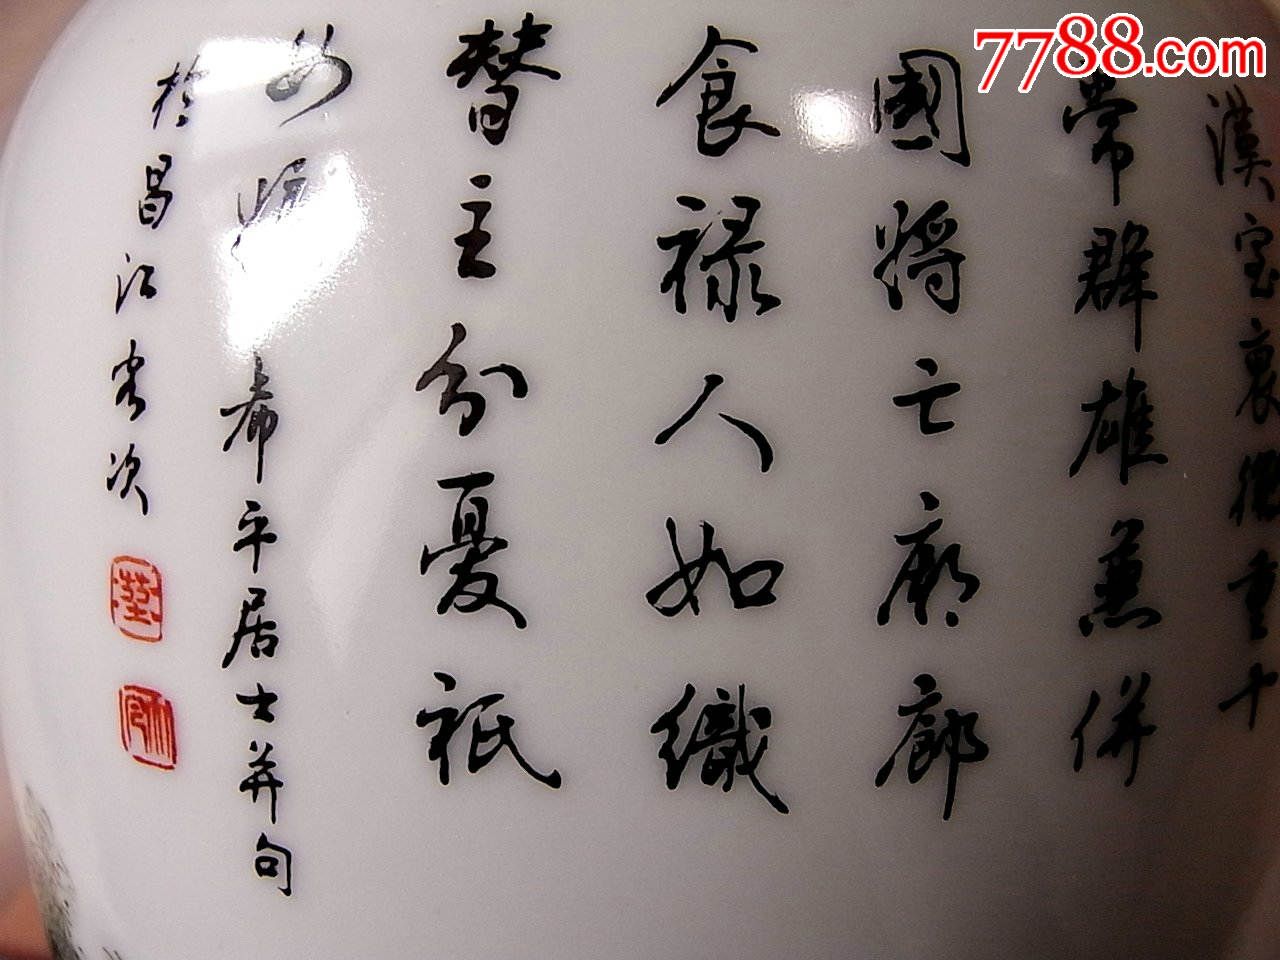 7788.com
漢室衰微重十
常群雄兼併
國將亡廟廊
食祿人如織
替主分憂祇
女媧 希平居士并句
於昌江客次